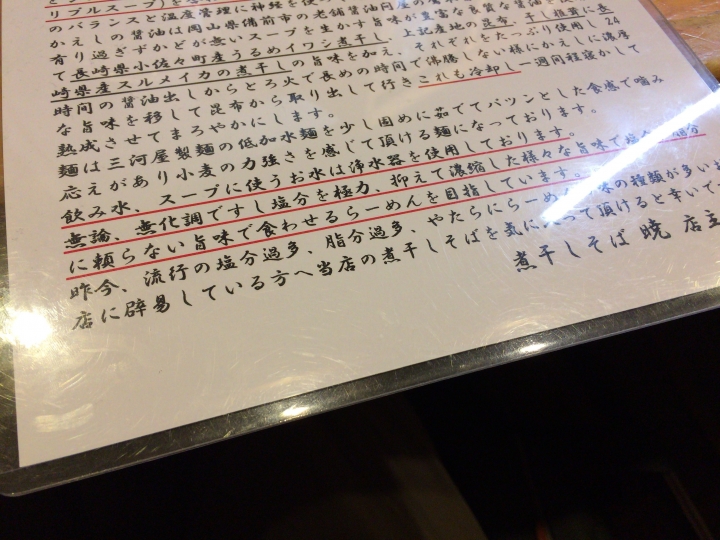 リプルスープ)を
のバランスと温度管理に神経を使
かえしの醤油は岡山県備前市の老舗醤油問屋の
有り過ぎずかどが無いスープを生かす旨味が豊富な良質な醤油と
て長崎県小佐々町産うるめイワシ煮干し、上記産地の昆布、干し椎茸に長
崎県産スルメイカの煮干しの旨味を加え、それぞれをたっぷり使用し24
時間の醤油出しからとろ火で長めの時間で沸騰しない様にかえしに濃厚
な旨味を移して昆布から取り出して行きこれも冷却し一週間程寝かして
熟成させてまろやかにします。
麺は三河屋製麺の低加水麺を少し固めに茹でてパツンとした食感で噛み
応えがあり小麦の力強さを感じて頂ける麺になっております。
飲み水、スープに使うお水は浄水器を使用しております。
無論、無化調ですし塩分を極力、抑えて濃縮した様々な旨味で塩分、脂分
に頼らない旨味で食わせるらーめんを目指しています。
昨今、流行の塩分過多、脂分過多、やたらにらーめん 味の種類が多いお
店に辟易している方へ当店の煮干しそばを気に入って頂けると幸いで
煮干しそば 暁 店主